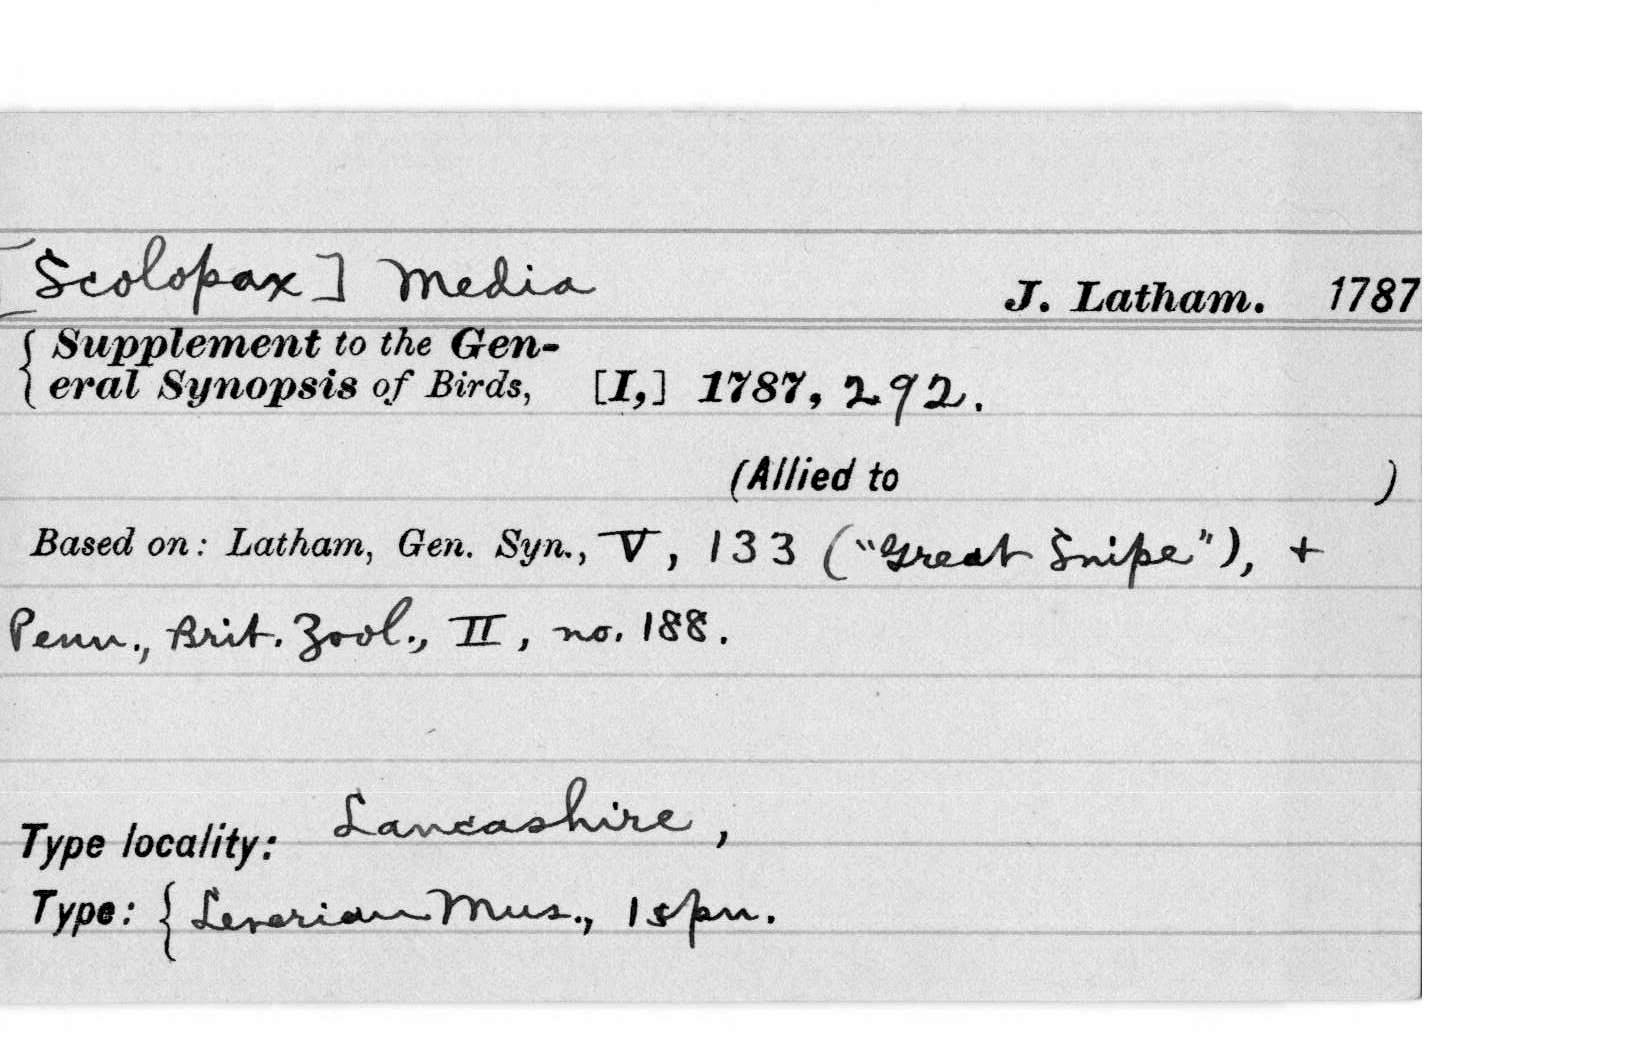 [Scolopax] Media J. Latham. 1787
{ Supplement to the Gen-
eral Synopsis of Birds, [I,] 1787, 292.
(Allied to )
Based on: Latham, Gen. Syn., V, 133 ("Great Snipe"), +
Penn., Brit. Zool., II, no. 188.
Type locality: Lancashire,
Type: { Leverian Mus., 1 spn.